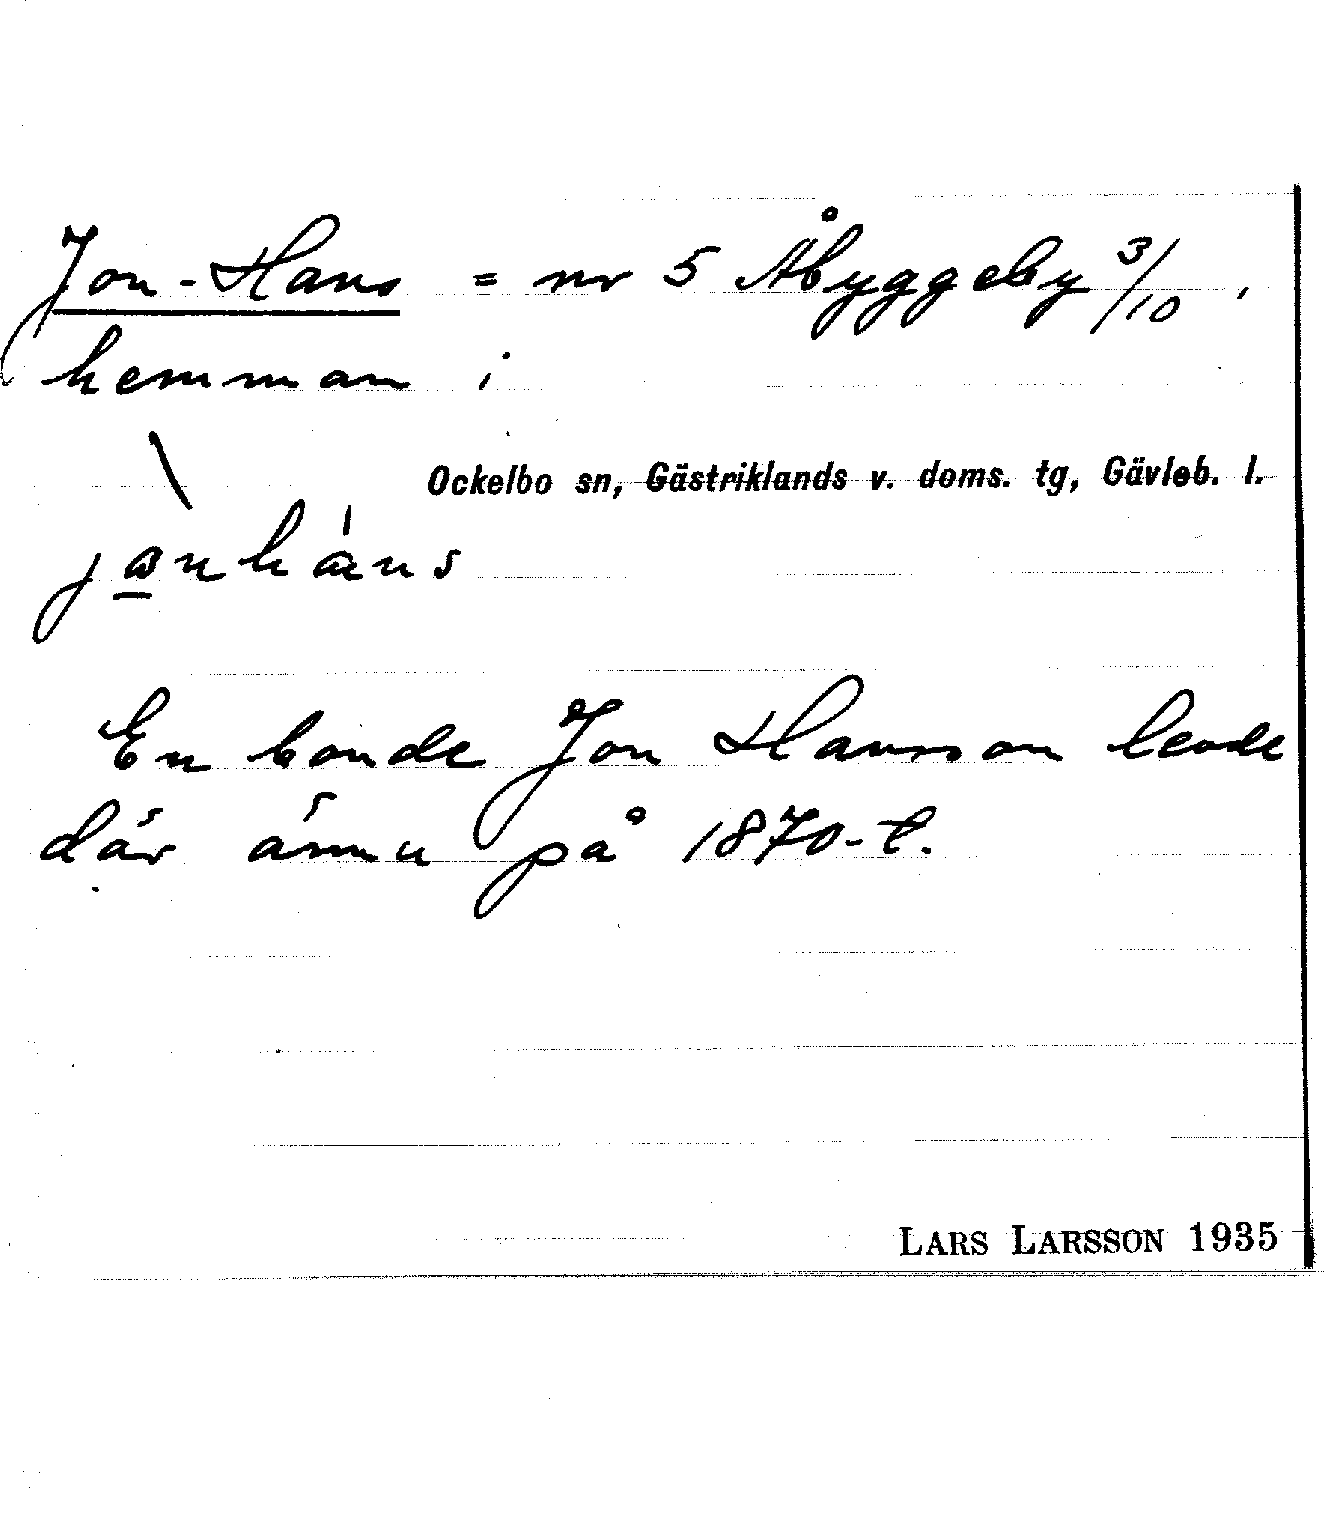 Jon-Hans = nr 5 Åbyggeby 3/10,
hemman i
Ockelbo sn, Gästriklands v. doms. tg, Gävleb. l.
En bonde Jon Hansson levde
där ännu på 1870-t.
LARS LARSSON 1935